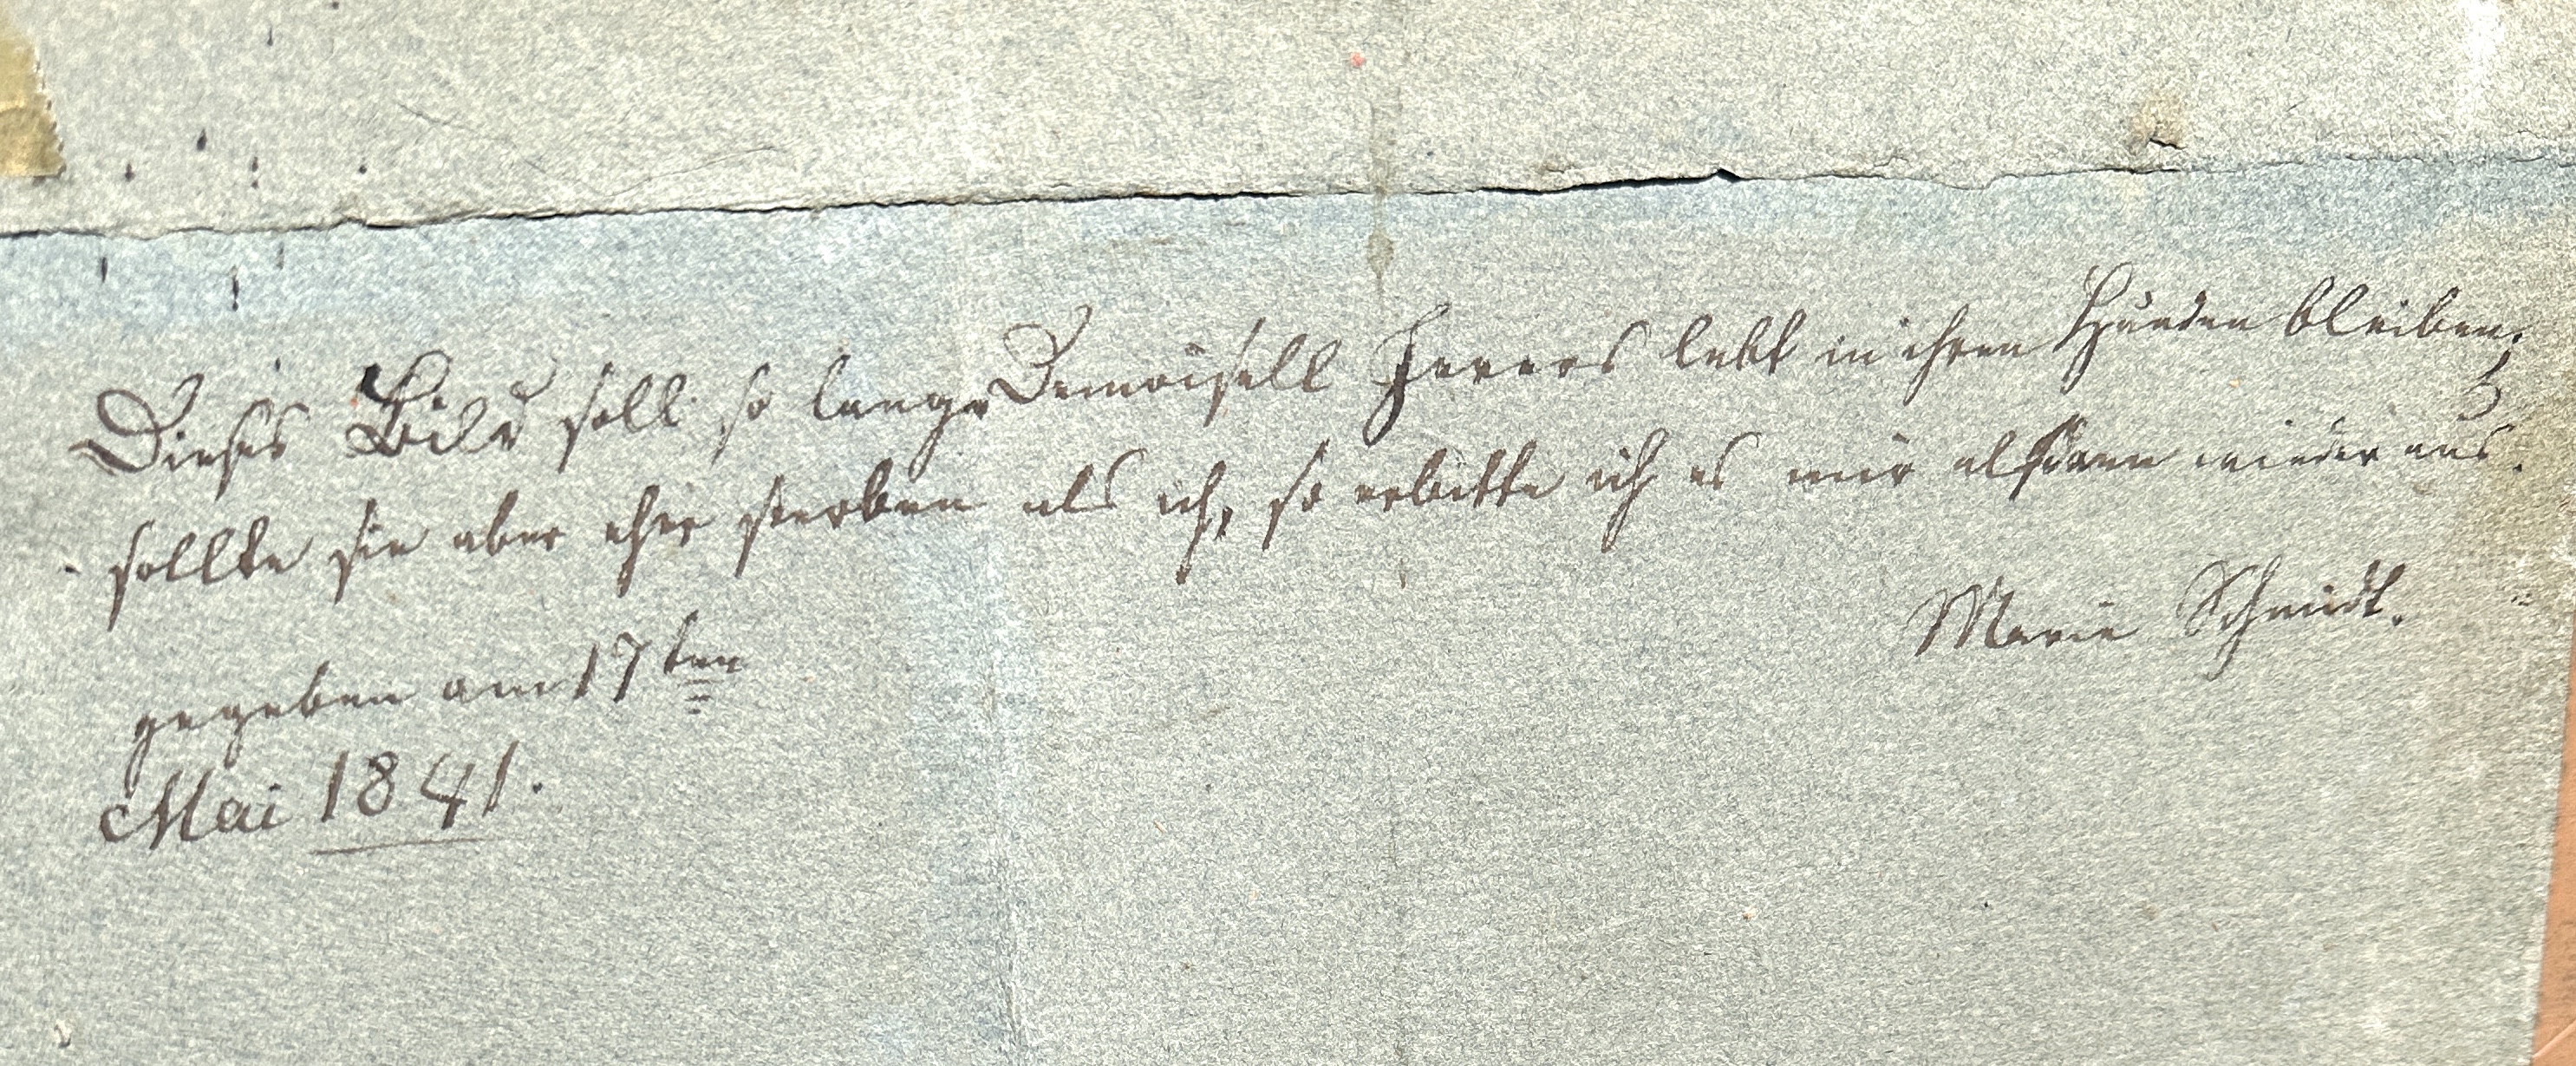 Dieses Bild soll so lange Demoisell Herers lebt in ihren Händen bleiben;
sollte sie aber eher sterben als ich, so erbitte ich es mir alsdann wieder aus.
Marie Schmidt.
gegeben am 17ten
Mai 1841.